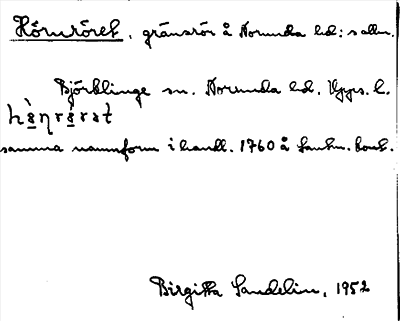 Hörnröret, gränsrör å Norunda hd: s allm.
Björklinge sn. Norunda hd. Upps. l.
hǜn̥rǿrət
samma namnform i handl. 1760 å Lantm. kont.
Birgitta Sandelin, 1952